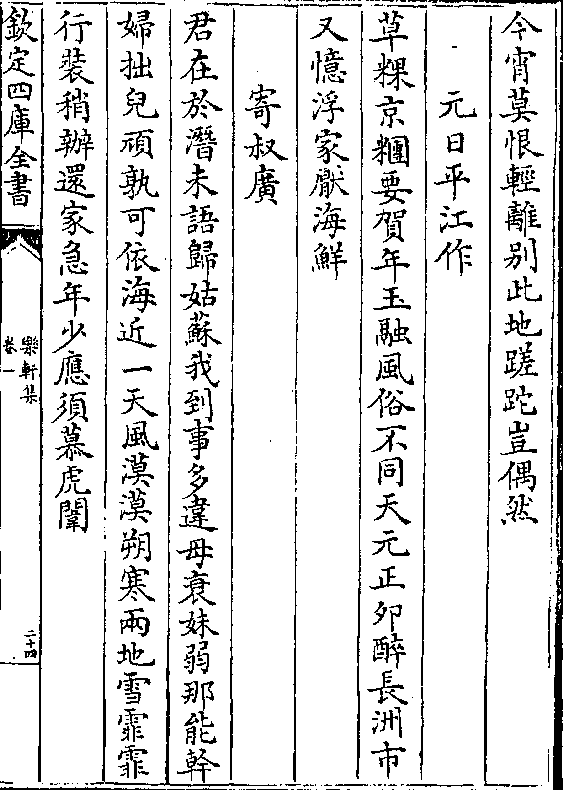 今宵莫恨輕離别此地蹉跎豈偶然
元日平江作
草粿京糰要賀年玉融風俗不同天元正夘醉長洲市
又憶浮家厭海鮮
寄叔廣
君在於潛未語歸姑蘇我到事多違母衰妹弱那能幹
婦拙兒頑孰可依海近一天風漠漠朔寒兩地雪霏霏
行裝稍辦還家急年少應須慕虎闈
欽定四庫全書
樂軒集
卷一
二十四